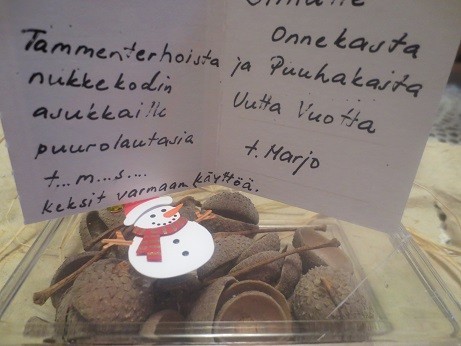 Tammenterhoista
nukkekodin
asukkaille
puurolautasia
t... m... s....
keksit varmaan käyttöä.
Sinulle
Onnekasta
ja Puuhakasta
Uutta Vuotta
t. Marjo